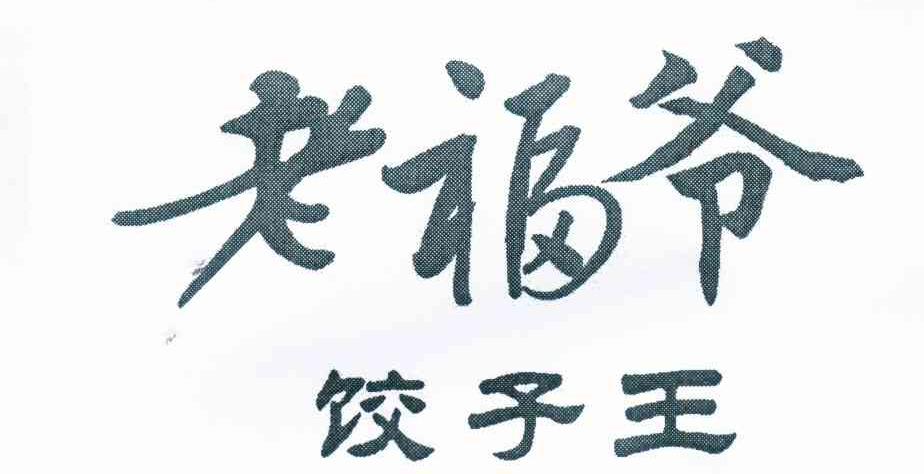 老福爷
饺子王